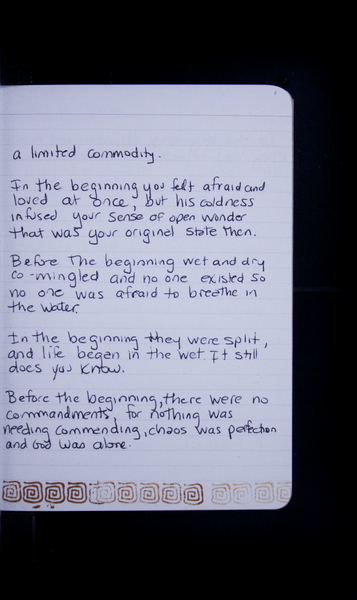 a limited commodity.
In the beginning you felt afraid and
loved at once, but his coldness
infused your sense of open wonder
that was your originel state then.
Before The beginning wet and dry
co-mingled and no one existed so
no one was afraid to breathe in
the water.
In the beginning they were split,
and life began in the wet It still
does you know.
Before the beginning, there were no
commandments, for nothing was
needing commending, chaos was perfection
and God was alone.